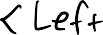 < Left